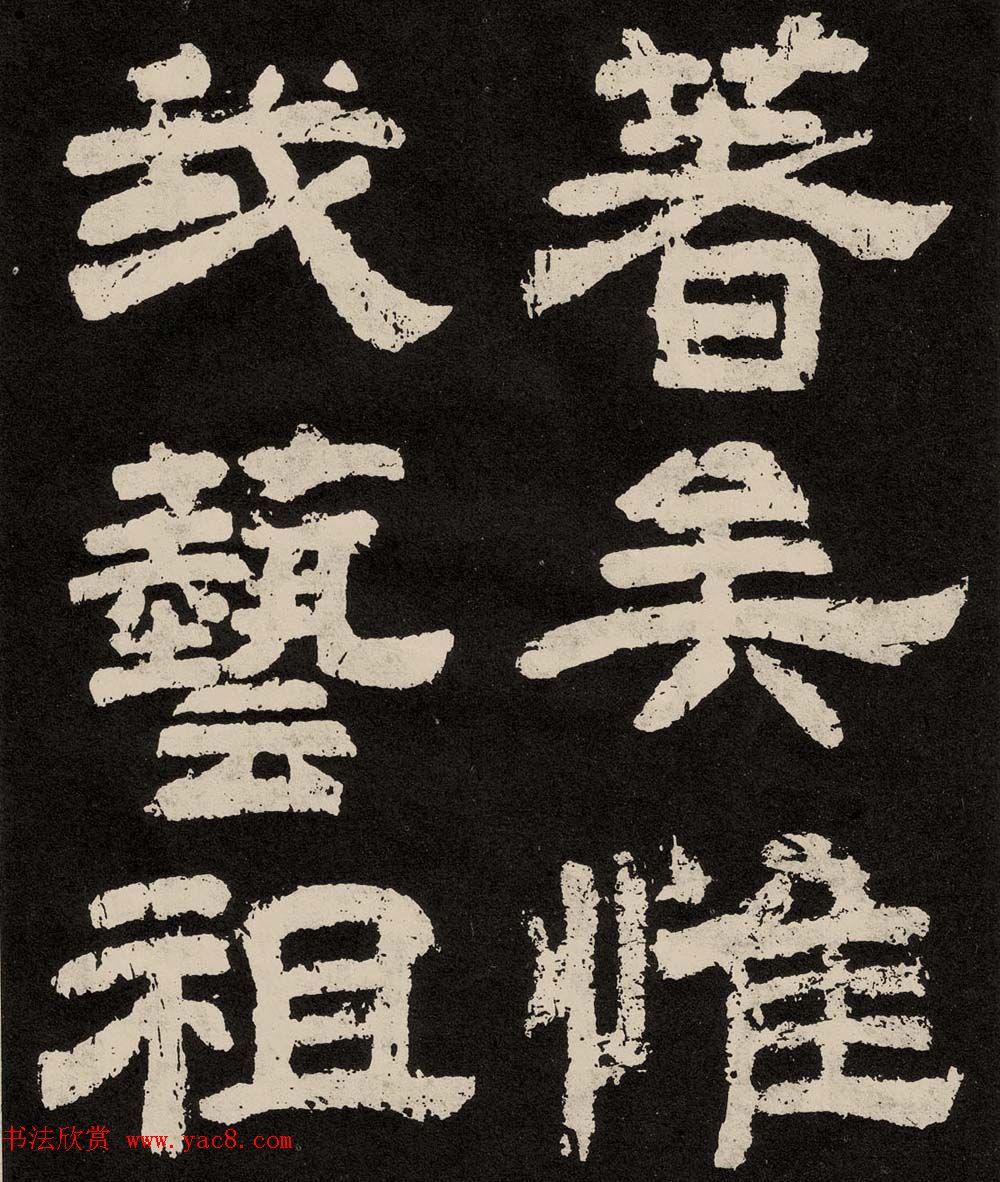 著矣惟
我藝祖
书法欣赏 www.yac8.com